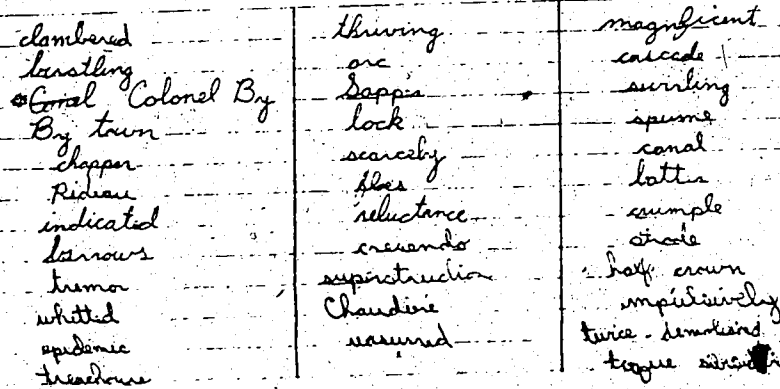 clambered
bustling
Colonel By
By town
chapper
Rideau
indicated
barrows
tremor
whittid
epidemic
thriving
arc
Sappis
lock
scarceby
floes
reluctance
crecendo
superstruction
Chaudiré
magnificent
cascade
swirling
spume
canal
battis
crumple
strode
half crown
impulsively
twice-
togue